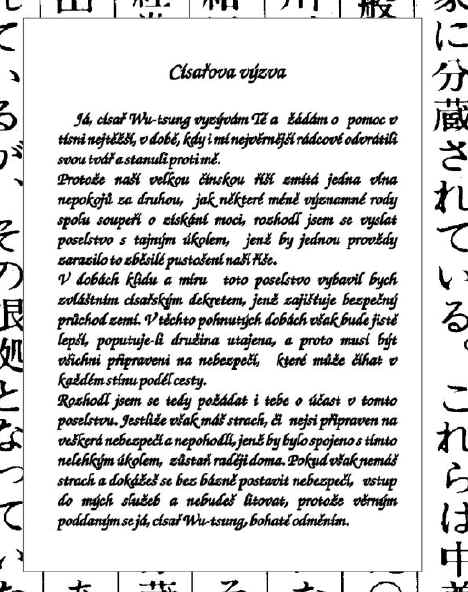 Císařova výzva
Já, císař Wu-tsung vyzývám Tě a žádám o pomoc v
tísni nejtěžší, v době, kdy i mí nejvěrnější rádcové odvrátili
svou tvář a stanuli proti mě.
Protože naší velkou čínskou říší zmítá jedna vlna
nepokojů za druhou, jak některé méně významné rody
spolu soupeří o získání moci, rozhodl jsem se vyslat
poselstvo s tajným úkolem, jenž by jednou provždy
zarazilo to zběsilé pustošení naší říše.
V dobách klidu a míru toto poselstvo vybavil bych
zvláštním císařským dekretem, jenž zajišťuje bezpečný
průchod zemí. V těchto pohnutých dobách však bude jistě
lepší, poputuje-li družina utajena, a proto musí být
všichni připraveni na nebezpečí, které může číhat v
každém stínu podél cesty.
Rozhodl jsem se tedy požádat i tebe o účast v tomto
poselstvu. Jestliže však máš strach, či nejsi připraven na
veškerá nebezpečí a nepohodlí, jenž by bylo spojeno s tímto
nelehkým úkolem, zůstaň raději doma. Pokud však nemáš
strach a dokážeš se bez bázně postavit nebezpečí, vstup
do mých služeb a nebudeš litovat, protože věrným
poddaným se já, císař Wu-tsung, bohatě odměním.
家に分蔵されている。これらは中